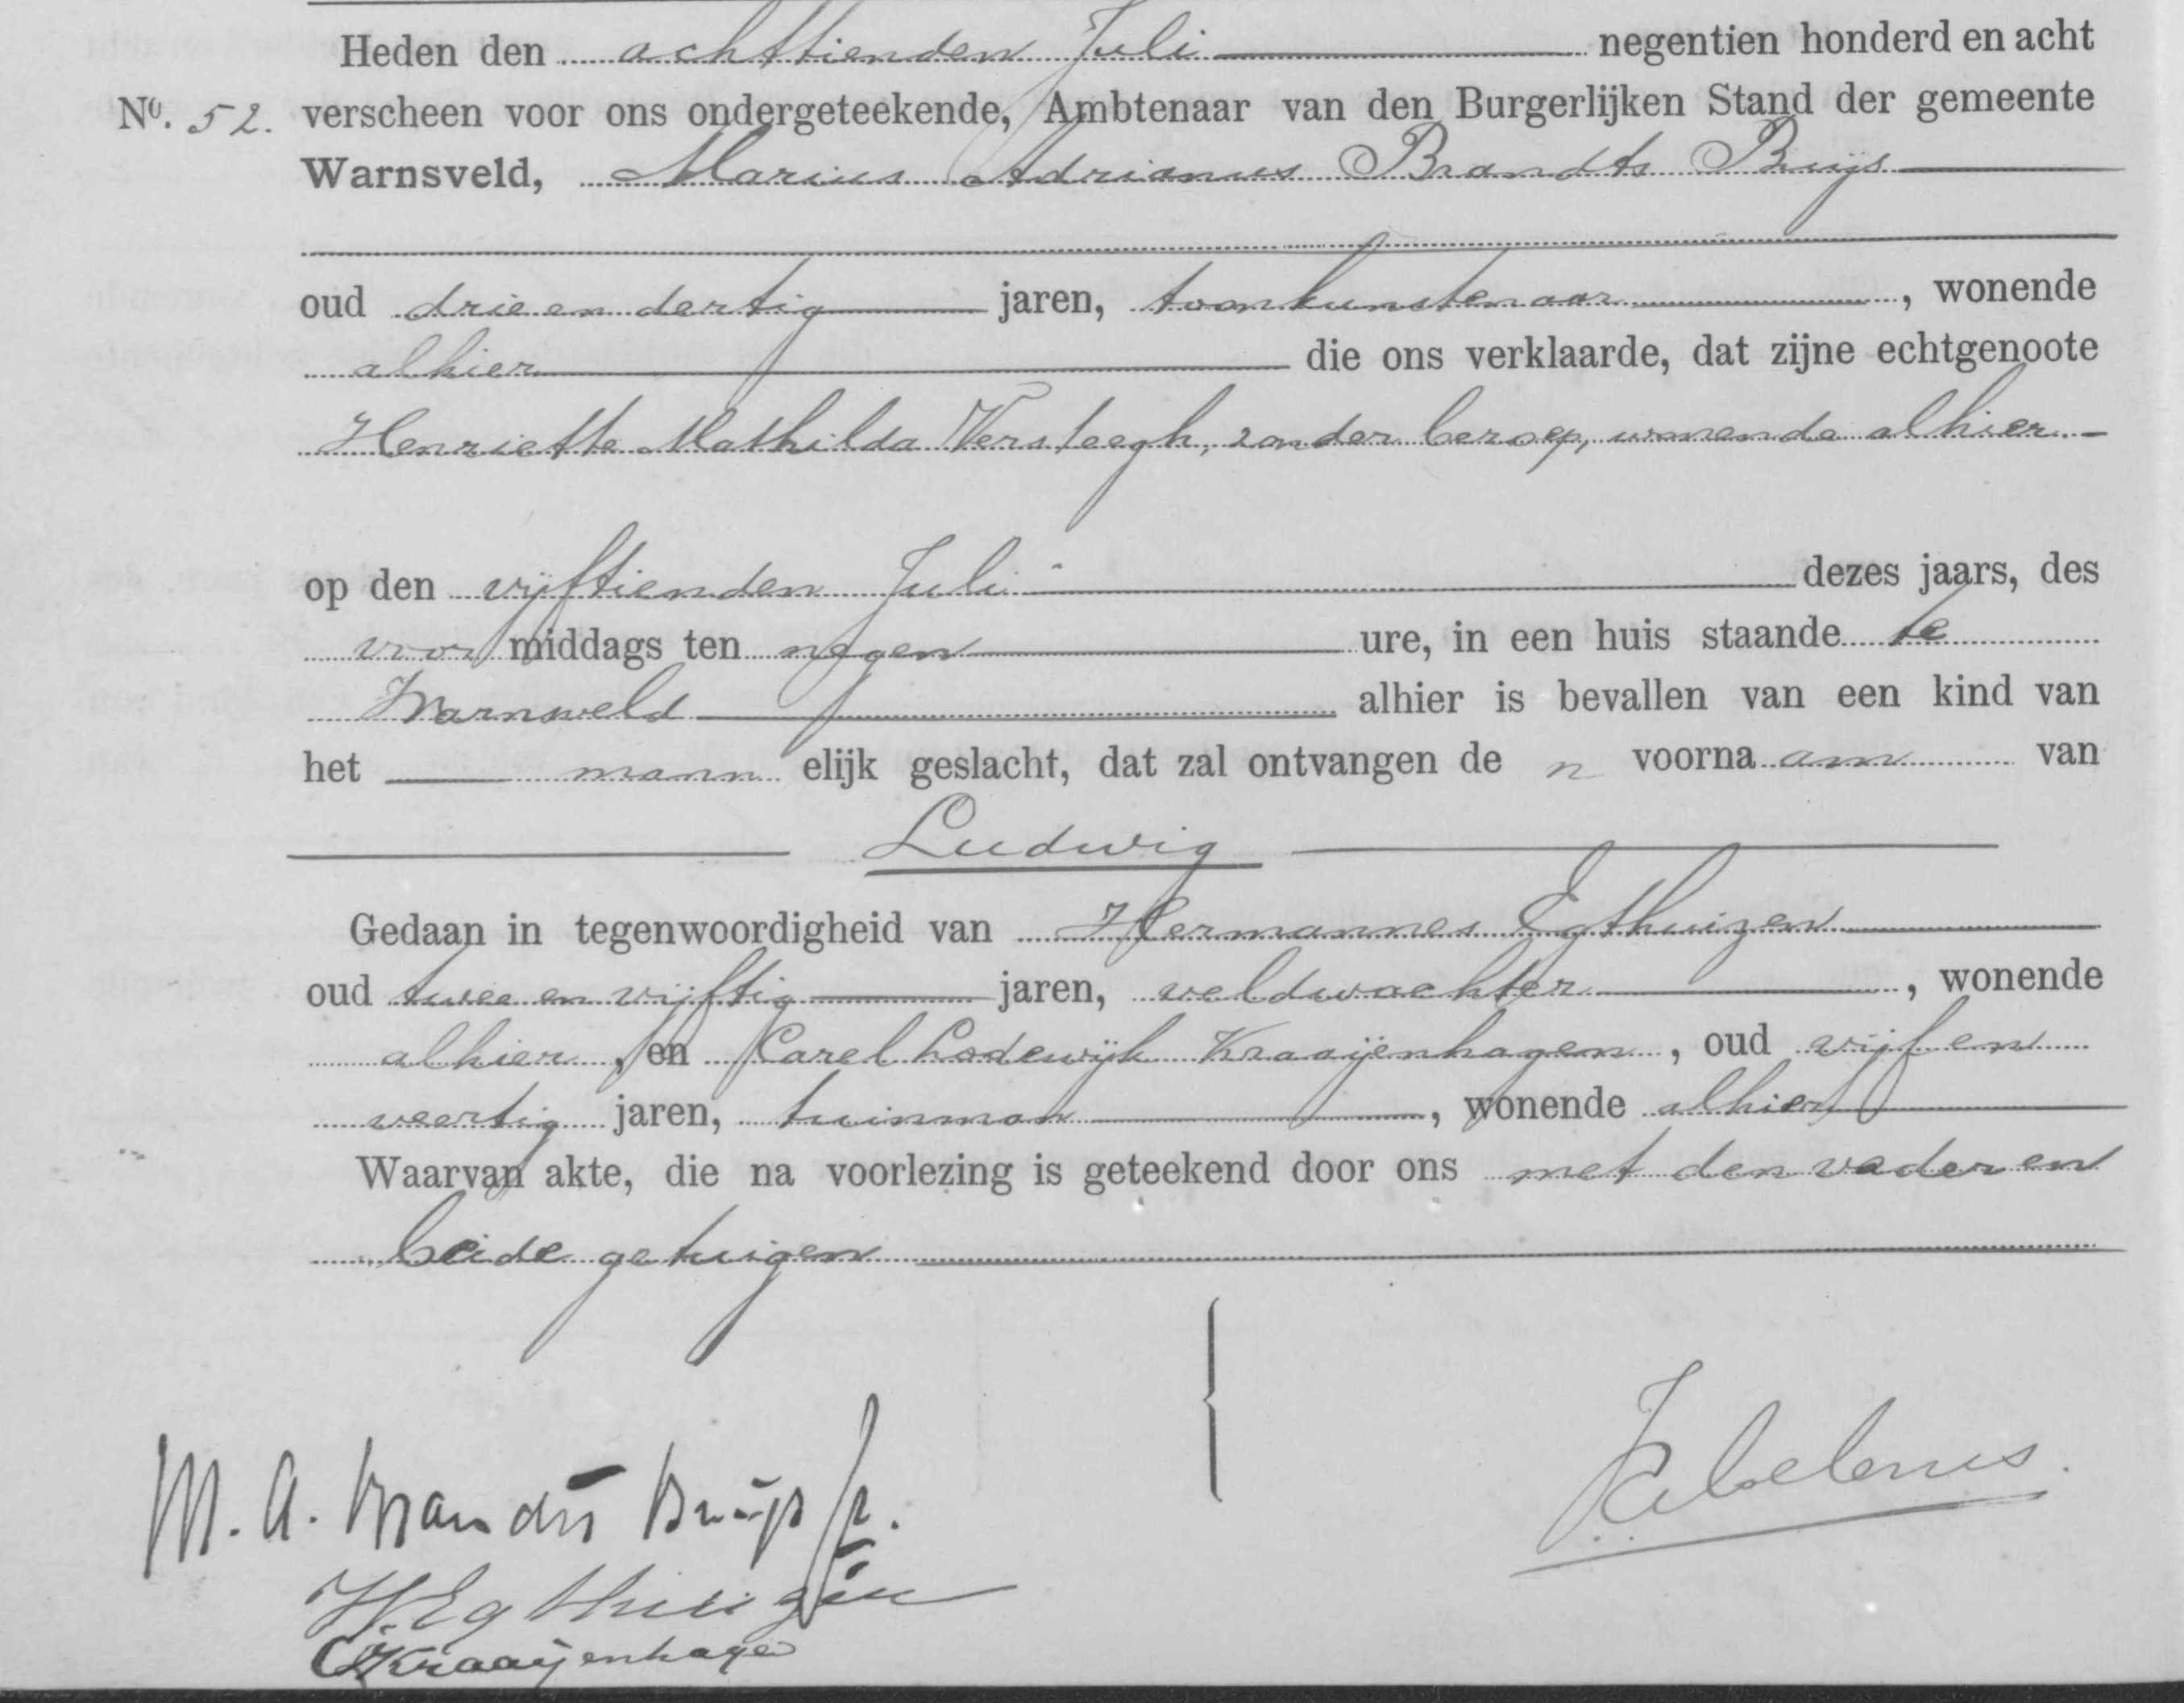 Heden den achttienden Juli negentien honderd en acht
No. 52. verscheen voor ons ondergeteekende, Ambtenaar van den Burgerlijken Stand der gemeente
Warnsveld, Marius Adrianus Brandts Buijs
oud drie en dertig jaren, toonkunstenaar, wonende
alhier die ons verklaarde, dat zijne echtgenoote
Henriette Mathilda Versteegh, zonder beroep, wonende alhier
op den vijftienden Juli dezes jaars, des
voor middags ten negen ure, in een huis staande te
Warnsveld alhier is bevallen van een kind van
het mann elijk geslacht, dat zal ontvangen de n voorna am van
Ludwig
Gedaan in tegenwoordigheid van Hermannes Egthuizen
oud twee en vijftig jaren, veldwachter, wonende
alhier, en Carel Lodewijk Kraaijenhagen, oud vijf en
veertig jaren, tuinman, wonende alhier
Waarvan akte, die na voorlezing is geteekend door ons met den vader en
beide getuigen
M. A. Brandts Buijs Jr.
H. Egthuizen
CL Kraaijenhage